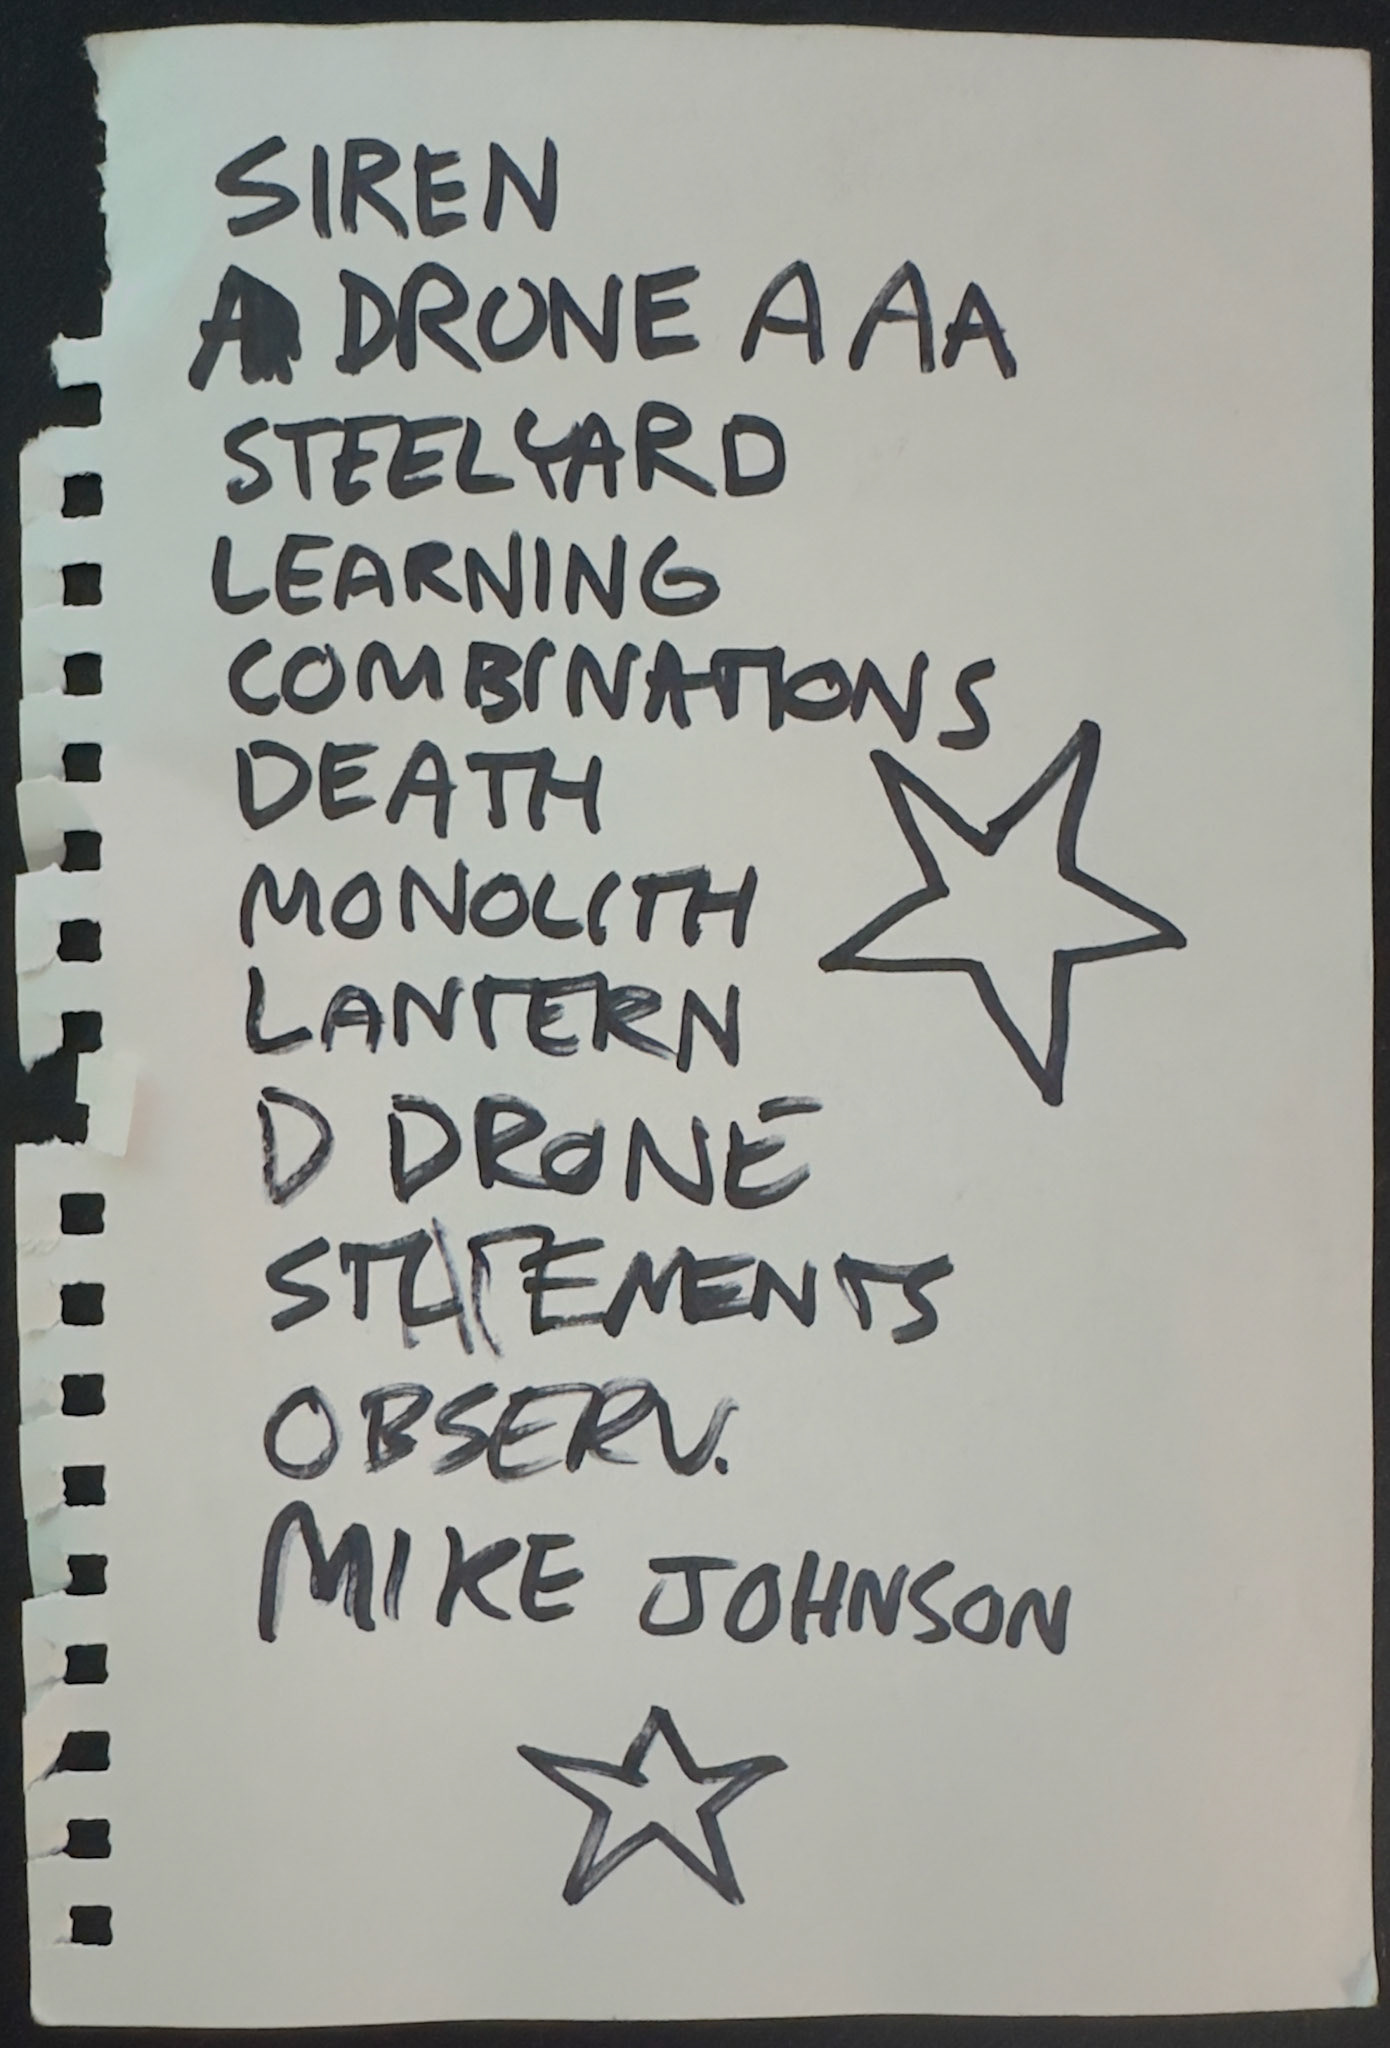 SIREN
A DRONE A A A
STEELYARD
LEARNING
COMBINATIONS
DEATH
MONOLITH
LANTERN
D DRONE
STATEMENTS
OBSERV.
MIKE JOHNSON